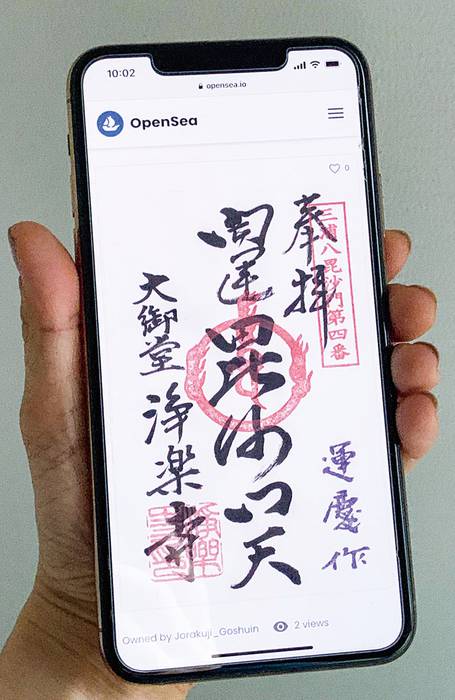 10:02
opensea.io
OpenSea
0
奉拝
三浦八毘沙門第四番
開運毘沙門天
大御堂
浄楽寺
運慶作
Owned by Jorakuji_Goshuin
2 views